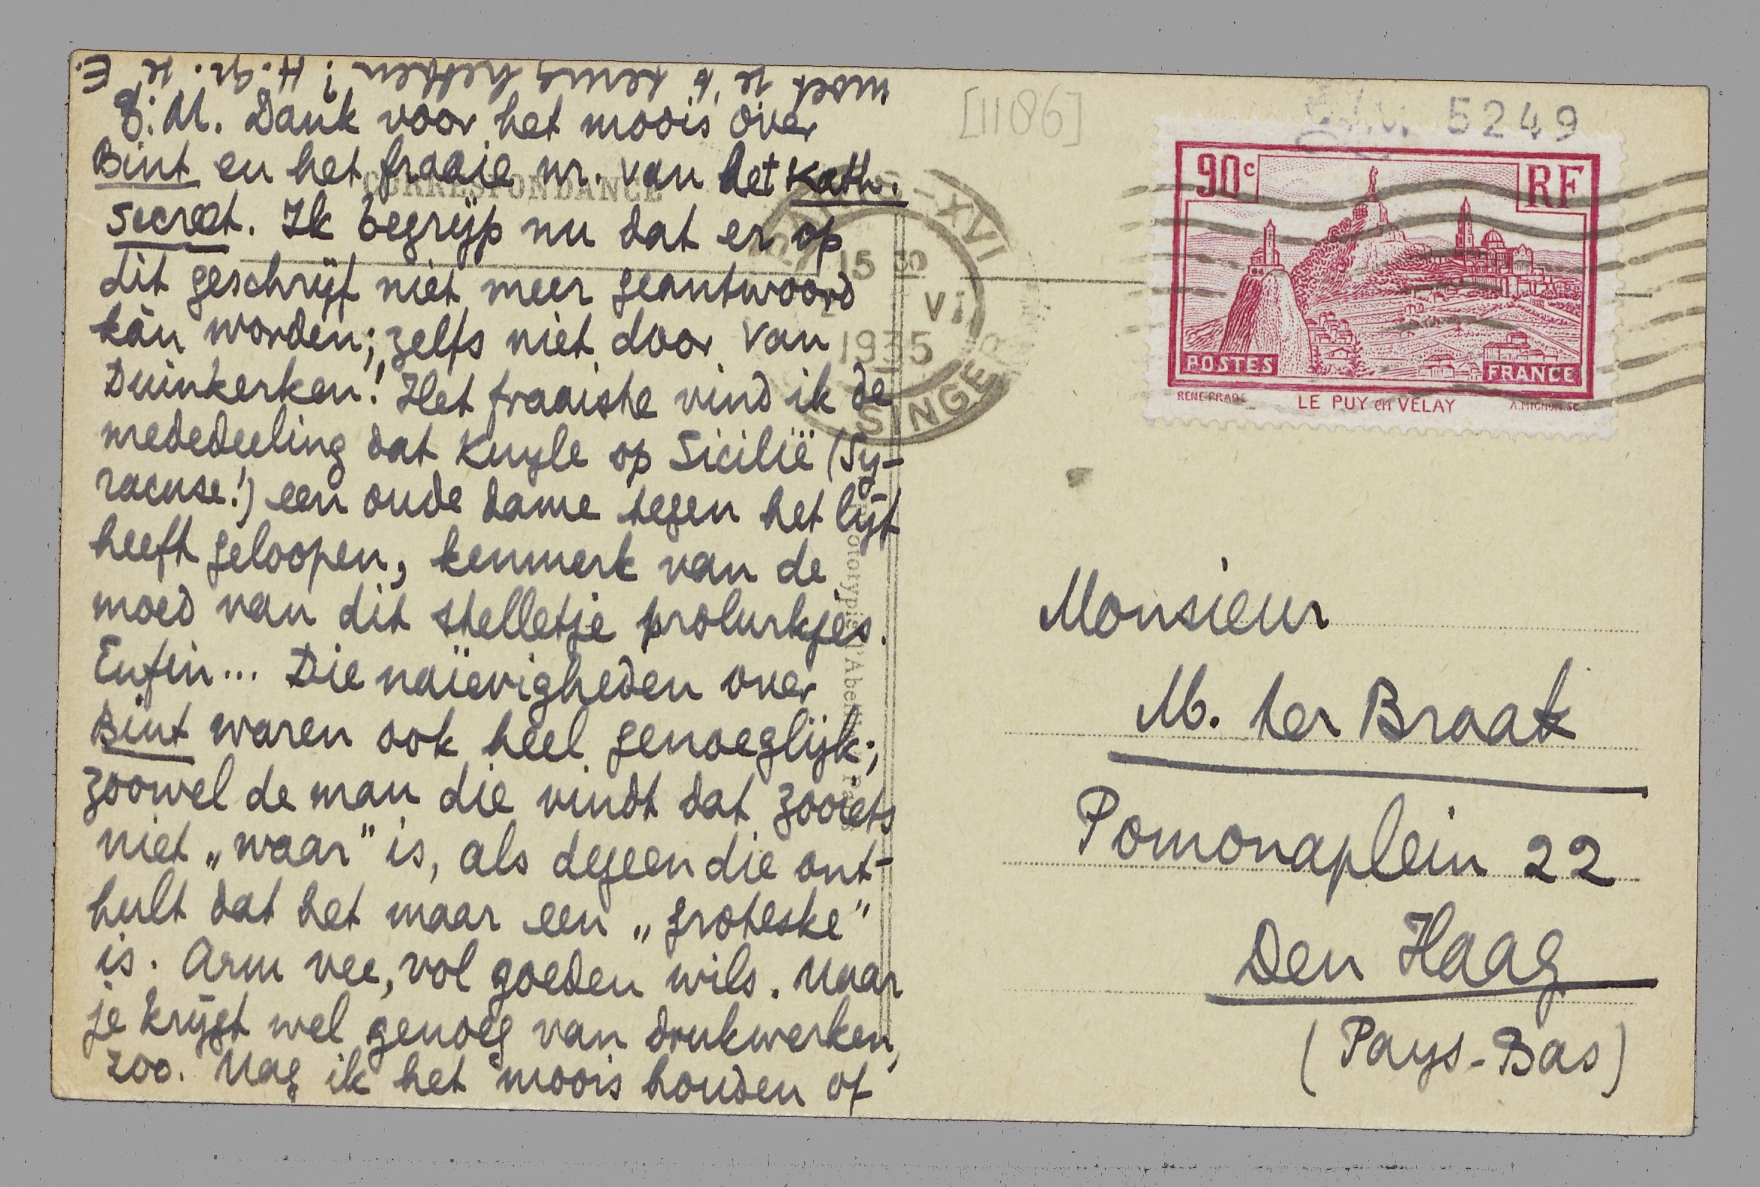 B.M. Dank voor het moois over
Bint en het fraaie nr. van het Kath.
Secreet. Ik begrijp nu dat er op
dit geschrijf niet meer geantwoord
kàn worden; zelfs niet door van
Duinkerken! Het fraaiste vind ik de
mededeeling dat Kuyle op Sicilië (Sy-
racuse!) een oude dame tegen het lijf
heeft geloopen, kenmerk van de
moed van dit stelletje prolurkjes.
Enfin... Die naïevigheden over
Bint waren ook heel genoeglijk;
zoowel de man die vindt dat zooiets
niet „waar” is, als degeen die ont-
hult dat het maar een „groteske”
is. Arm vee, vol goeden wils. Maar
je krijgt wel genoeg van drukwerken,
zoo. Mag ik het moois houden of
moet je 't terug hebben? H. gr. je E.
CORRESPONDANCE
[1186]
5249
PARIS-XVI
15 30
VI
1935
SINGER
90c
RF
POSTES
FRANCE
LE PUY en VELAY
Monsieur
M. ter Braak
Pomonaplein 22
Den Haag
(Pays-Bas)